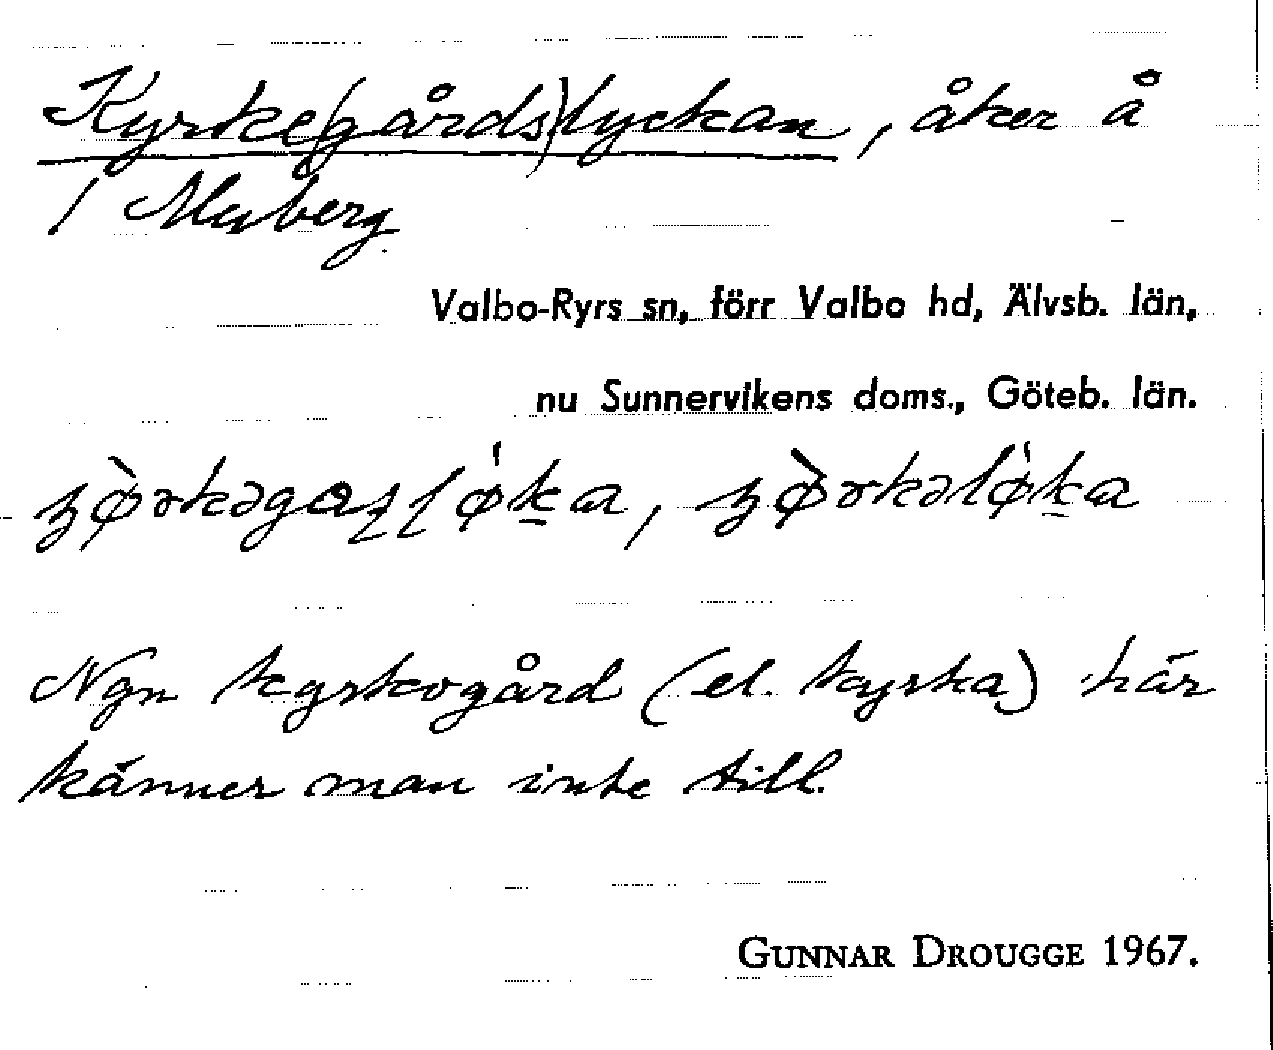 Kyrke(gårds)lyckan, åker å
/ Maberg.
Valbo-Ryrs sn, förr Valbo hd, Älvsb. län,
nu Sunnervikens doms., Göteb. län.
Ngn kyrkogård (el. kyrka) här
känner man inte till.
GUNNAR DROUGGE 1967.